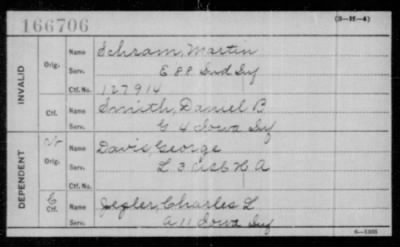 166706
(3-H-4)
INVALID
Orig.
Name Schram, Martin
Serv. E 88 Ind Inf
Ctf. No. 127914
Ctf.
Name Smith, Daniel B
Serv. G 4 Iowa Inf
DEPENDENT
Orig.
Name Davis, George
Serv. L 3 US C H A
Ctf. No.
C
Ctf.
Name Jegler, Charles L
Serv. A 11 Iowa Inf